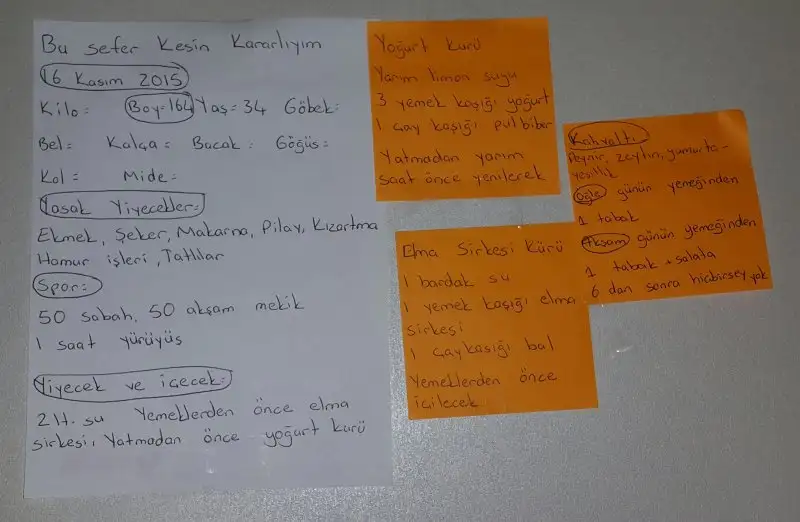 Bu sefer Kesin Kararlıyım
16 Kasım 2015
Kilo: Boy=164 Yaş=34 Göbek:
Bel: Kalça= Bacak: Göğüs:
Kol= Mide:
Yasak Yiyecekler:
Ekmek, Şeker, Makarna, Pilav, Kızartma
Hamur işleri, Tatlılar
Spor:
50 sabah, 50 akşam mekik
1 saat yürüyüş
Yiyecek ve içecek:
2 lt. su Yemeklerden önce elma
sirkesi, Yatmadan önce yoğurt kürü
Yoğurt Kürü
Yarım limon suyu
3 yemek kaşığı yoğurt
1 çay kaşığı pul biber
Yatmadan yarım
saat önce yenilecek
Elma Sirkesi Kürü
1 bardak su
1 yemek kaşığı elma
sirkesi
1 çay kaşığı bal
Yemeklerden önce
içilecek
Kahvaltı
Peynir, zeytin, yumurta-
yeşillik
Öğle günün yemeğinden
1 tabak
Akşam günün yemeğinden
1 tabak + salata
6 dan sonra hiçbirşey yok